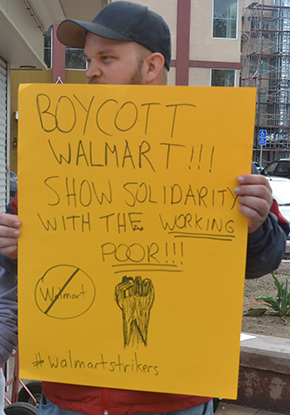 BOYCOTT
WALMART!!!
SHOW SOLIDARITY
WITH THE WORKING
POOR!!!
Walmart
#walmartstrikers